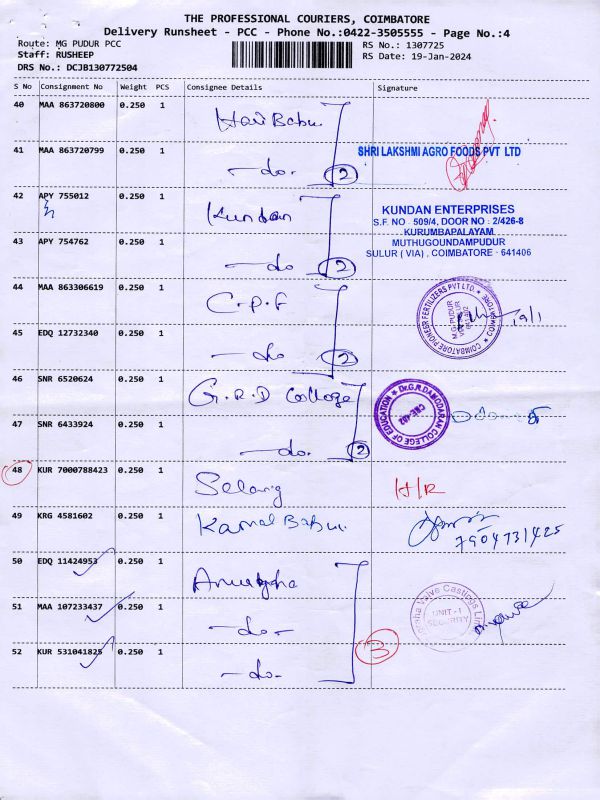 THE PROFESSIONAL COURIERS, COIMBATORE
Delivery Runsheet - PCC - Phone No.:0422-3505555 - Page No.:4
Route: MG PUDUR PCC
RS No.: 1307725
Staff: RUSHEEP
RS Date: 19-Jan-2024
DRS No.: DCJB130772504
S No Consignment No Weight PCS Consignee Details Signature
40 MAA 863720800 0.250 1 Hari Babu
41 MAA 863720799 0.250 1 -do- 2 SHRI LAKSHMI AGRO FOODS PVT LTD
42 APY 755012 0.250 1 Kundan
KUNDAN ENTERPRISES
S.F. NO : 509/4, DOOR NO : 2/426-8
KURUMBAPALAYAM
MUTHUGOUNDAMPUDUR
SULUR ( VIA) , COIMBATORE - 641406
43 APY 754762 0.250 1 -do 2
44 MAA 863306619 0.250 1 C.P.F
COIMBATORE PIONEER FERTILIZERS PVT LTD
M.G. PUDUR
45 EDQ 12732340 0.250 1 -do 2
46 SNR 6520624 0.250 1 G.R.D College
Dr.G.R.DAMODARAN COLLEGE OF EDUCATION
CBE-402
47 SNR 6433924 0.250 1 -do. 2
48 KUR 7000788423 0.250 1 Selang H/R
49 KRG 4581602 0.250 1 Kamal Babu 7904731425
50 EDQ 11424953 0.250 1 Anugraha
Valve Castings Lim
UNIT - I
SECURITY
51 MAA 107233437 0.250 1 -do-
52 KUR 531041825 0.250 1 -do- 3